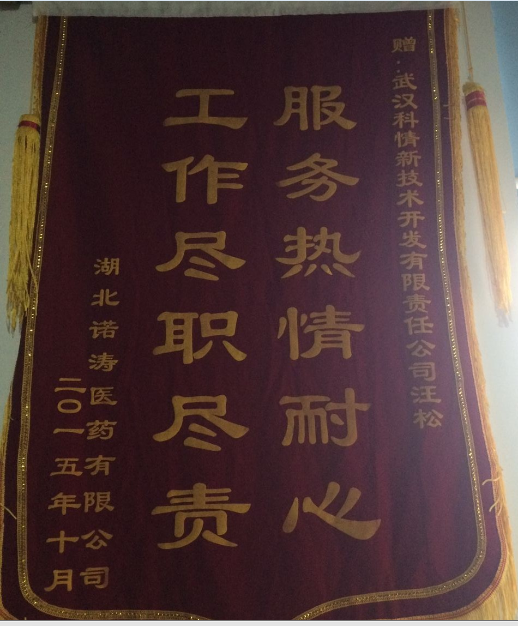 赠:武汉科情新技术开发有限责任公司汪松
服务热情耐心
工作尽职尽责
湖北诺涛医药有限公司
二〇一五年十月